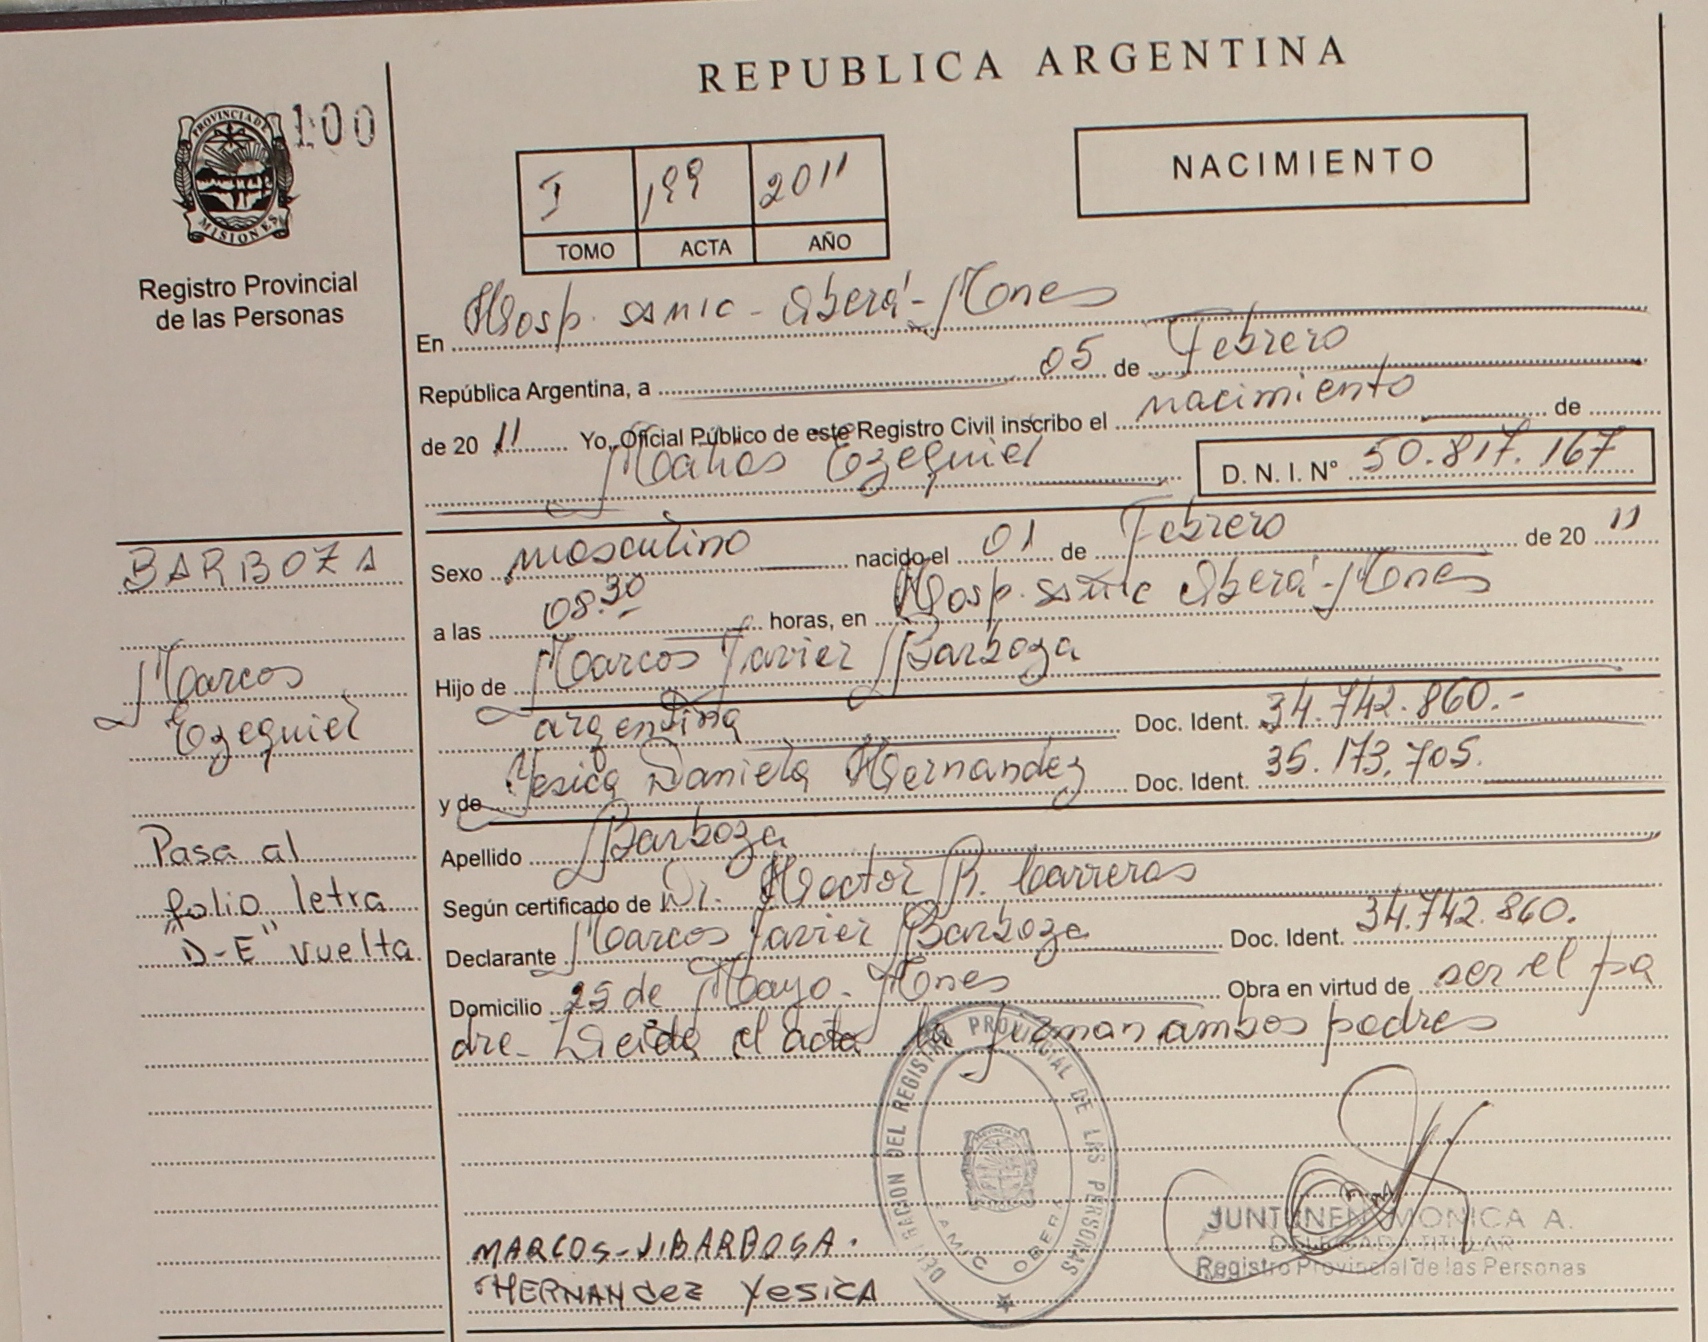 REPUBLICA ARGENTINA
100
PROVINCIA DE MISIONES
Registro Provincial
de las Personas
I 199 2011
TOMO ACTA AÑO
NACIMIENTO
En Hosp. SAMIC - Oberá - Mnes
República Argentina, a 05 de Febrero
de 20 11 Yo, Oficial Público de este Registro Civil inscribo el nacimiento de
Marcos Ezequiel D. N. I. Nº 50.817.167
Sexo masculino nacido el 01 de Febrero de 20 11
a las 08.30 horas, en Hosp. samic Oberá - Mnes
Hijo de Marcos Javier Barboza
argentina Doc. Ident. 34.742.860.-
y de Yesica Daniela Hernandez Doc. Ident. 35.173.705.
Apellido Barboza
Según certificado de Dr. Hector R. Carreras
Declarante Marcos Javier Barboza Doc. Ident. 34.742.860.
Domicilio 25 de Mayo - Mnes Obra en virtud de ser el pa
dre - Leida el acta la firman ambos padres
BARBOZA
Marcos
Ezequiel
Pasa al
folio letra
"D-E" vuelta
MARCOS - J. BARBOSA.
HERNANdez Yesica
DELEGACION DEL REGISTRO PROVINCIAL DE LAS PERSONAS
SAMIC OBERA
JUNTUNEN MONICA A.
DELEGADA TITULAR
Registro Provincial de las Personas